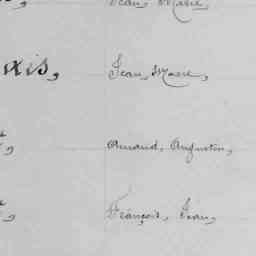 Jean, Marie,
ais, Jean, Marie,
Armand, Augustin,
François, Jean,